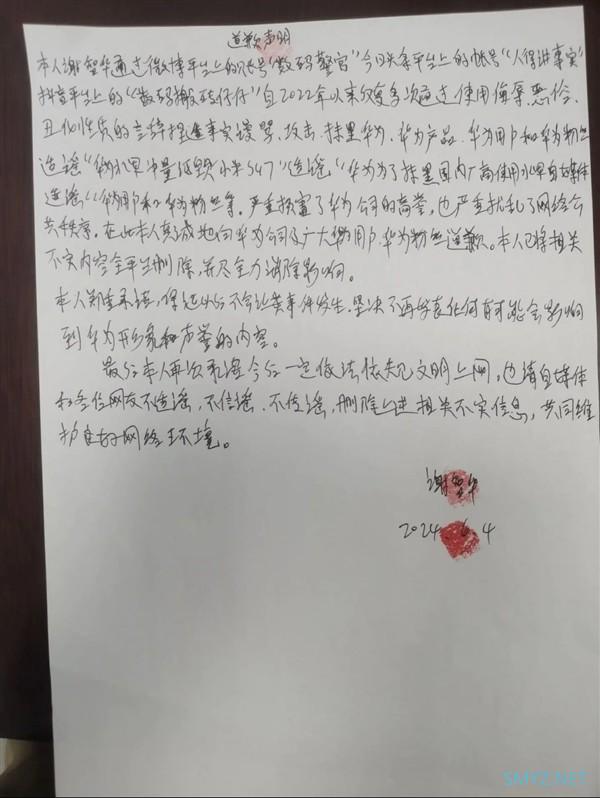 道歉声明
本人谢智华通过微博平台上的账号“数码警官”今日头条平台上的帐号“人得讲事实”
抖音平台上的“数码搬砖仔仔”自2022年以来反复多次通过使用侮辱、恶俗、
丑化性质的言辞捏造事实谩骂、攻击、抹黑华为、华为产品、华为用户和华为粉丝
造谣“华为水军 诋毁小米SU7”造谣“华为为了抹黑国内厂商使用水军自媒体
造谣“华为用户和华为粉丝等。严重损害了华为公司的商誉，也严重扰乱了网络公
共秩序。在此本人真诚地向华为公司及广大华为用户、华为粉丝道歉。本人已将相关
不实内容全平台删除，并尽全力消除影响。
本人郑重承诺，保证以后不会让类事件发生。坚决不再发表任何有可能会影响
到华为形象和声誉的内容。
最后本人再次承诺今后一定依法依规文明上网，也请自媒体
和各位网友不造谣，不信谣、不传谣，删除上述相关不实信息，共同维
护良好网络环境。
谢智华
2024.6.4
SMYZ.NET